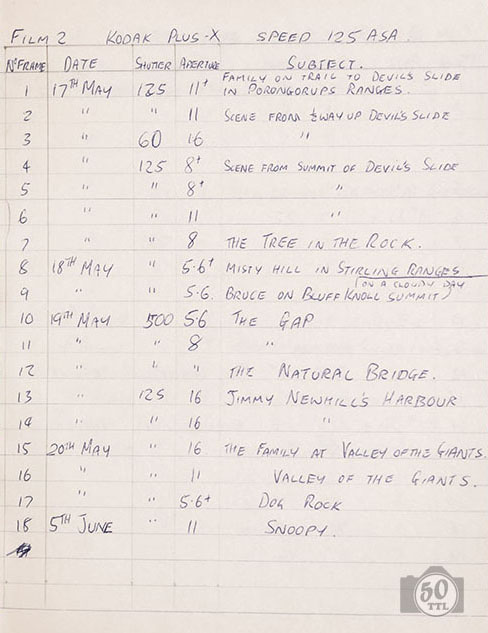 FILM 2 KODAK PLUS-X SPEED 125 ASA.
Nº FRAME DATE SHUTTER APERTURE SUBJECT.
1 17TH MAY 125 11+ FAMILY ON TRAIL TO DEVIL'S SLIDE
IN PORONGORUPS RANGES.
2 " " 11 SCENE FROM ½ WAY UP DEVIL'S SLIDE
3 " 60 16 "
4 " 125 8+ SCENE FROM SUMMIT OF DEVIL'S SLIDE
5 " " 8+ "
6 " " 11 "
7 " " 8 THE TREE IN THE ROCK.
8 18TH MAY " 5.6+ MISTY HILL IN STIRLING RANGES
(ON A CLOUDY DAY)
9 " " 5.6. BRUCE ON BLUFF KNOLL SUMMIT
10 19TH MAY 500 5.6 THE GAP
11 " " 8 "
12 " " " THE NATURAL BRIDGE.
13 " 125 16 JIMMY NEWHILL'S HARBOUR
14 " " 16 "
15 20TH MAY " 16 THE FAMILY AT VALLEY OF THE GIANTS.
16 " " 11 VALLEY OF THE GIANTS.
17 " " 5.6+ DOG ROCK
18 5TH JUNE " 11 SNOOPY.
50
TTL